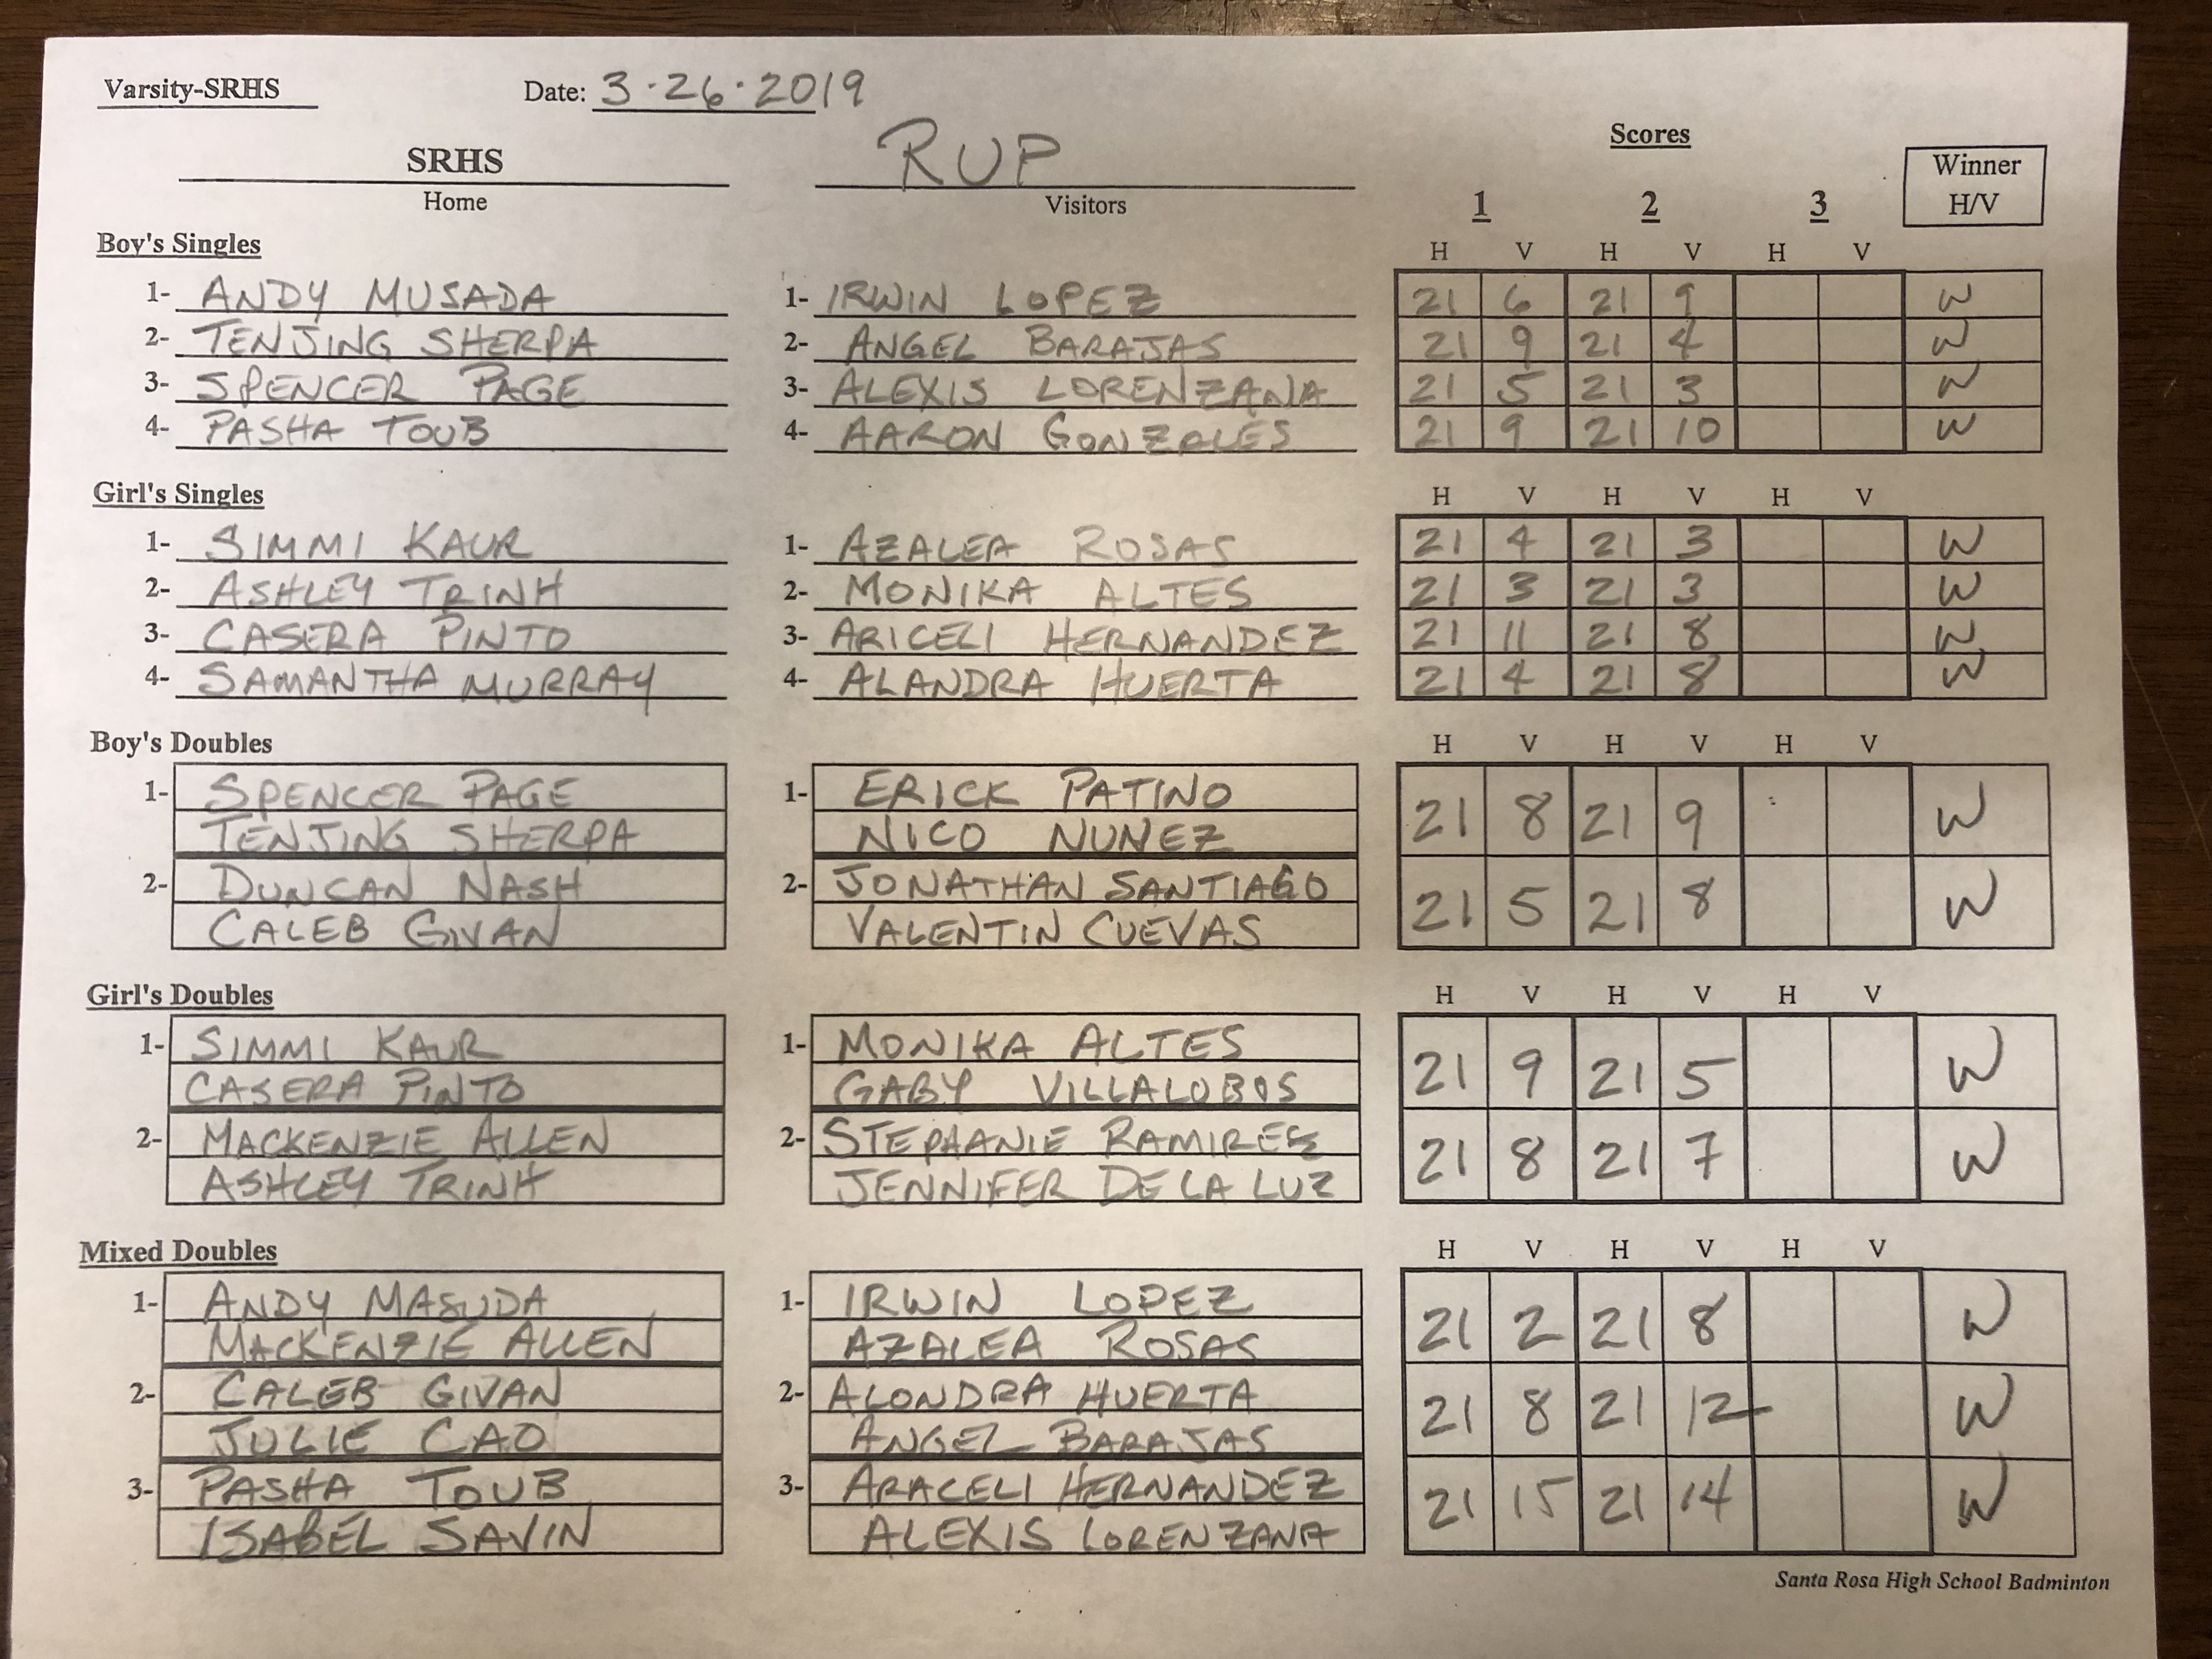 Varsity-SRHS Date: 3-26-2019
Scores
SRHS RUP Winner
Home Visitors 1 2 3 H/V
Boy's Singles H V H V H V
1- ANDY MUSADA 1- IRWIN LOPEZ 21 6 21 9 W
2- TENJING SHERPA 2- ANGEL BARAJAS 21 9 21 4 W
3- SPENCER PAGE 3- ALEXIS LORENZANA 21 5 21 3 W
4- PASHA TOUB 4- AARON GONZALES 21 9 21 10 W
Girl's Singles H V H V H V
1- SIMMI KAUR 1- AZALEA ROSAS 21 4 21 3 W
2- ASHLEY TRINH 2- MONIKA ALTES 21 3 21 3 W
3- CASERA PINTO 3- ARICELI HERNANDEZ 21 11 21 8 W
4- SAMANTHA MURRAY 4- ALANDRA HUERTA 21 4 21 8 W
Boy's Doubles H V H V H V
1- SPENCER PAGE 1- ERICK PATINO 21 8 21 9 W
TENJING SHERPA NICO NUNEZ
2- DUNCAN NASH 2- JONATHAN SANTIAGO 21 5 21 8 W
CALEB GIVAN VALENTIN CUEVAS
Girl's Doubles H V H V H V
1- SIMMI KAUR 1- MONIKA ALTES 21 9 21 5 W
CASERA PINTO GABY VILLALOBOS
2- MACKENZIE ALLEN 2- STEPHANIE RAMIREZ 21 8 21 7 W
ASHLEY TRINH JENNIFER DE LA LUZ
Mixed Doubles H V H V H V
1- ANDY MASUDA 1- IRWIN LOPEZ 21 2 21 8 W
MACKENZIE ALLEN AZALEA ROSAS
2- CALEB GIVAN 2- ALONDRA HUERTA 21 8 21 12 W
JULIE CAO ANGEL BARAJAS
3- PASHA TOUB 3- ARACELI HERNANDEZ 21 15 21 14 W
ISABEL SAVIN ALEXIS LORENZANA
Santa Rosa High School Badminton